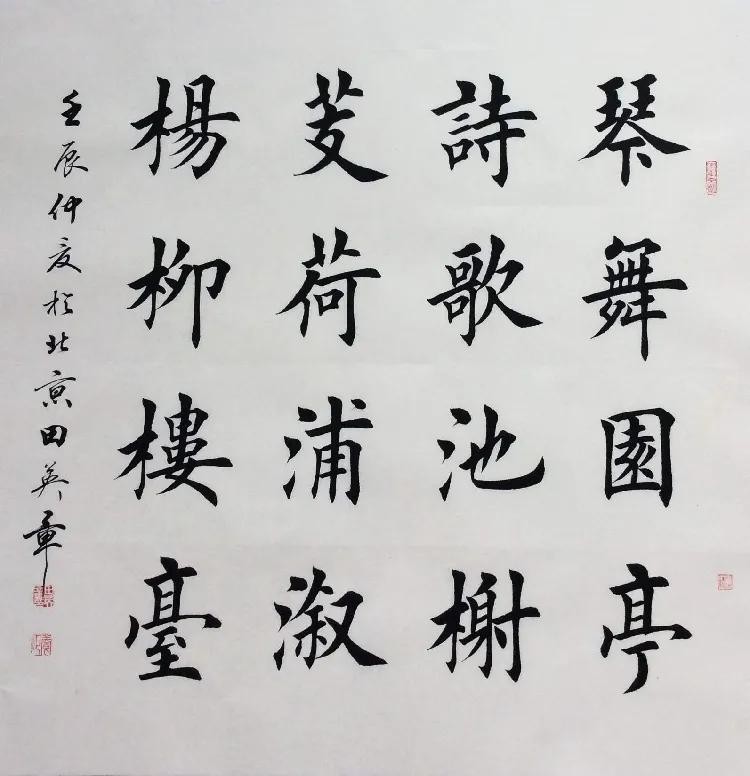 琴舞園亭
詩歌池榭
芰荷浦溆
楊柳樓臺
壬辰仲夏於北京田英章